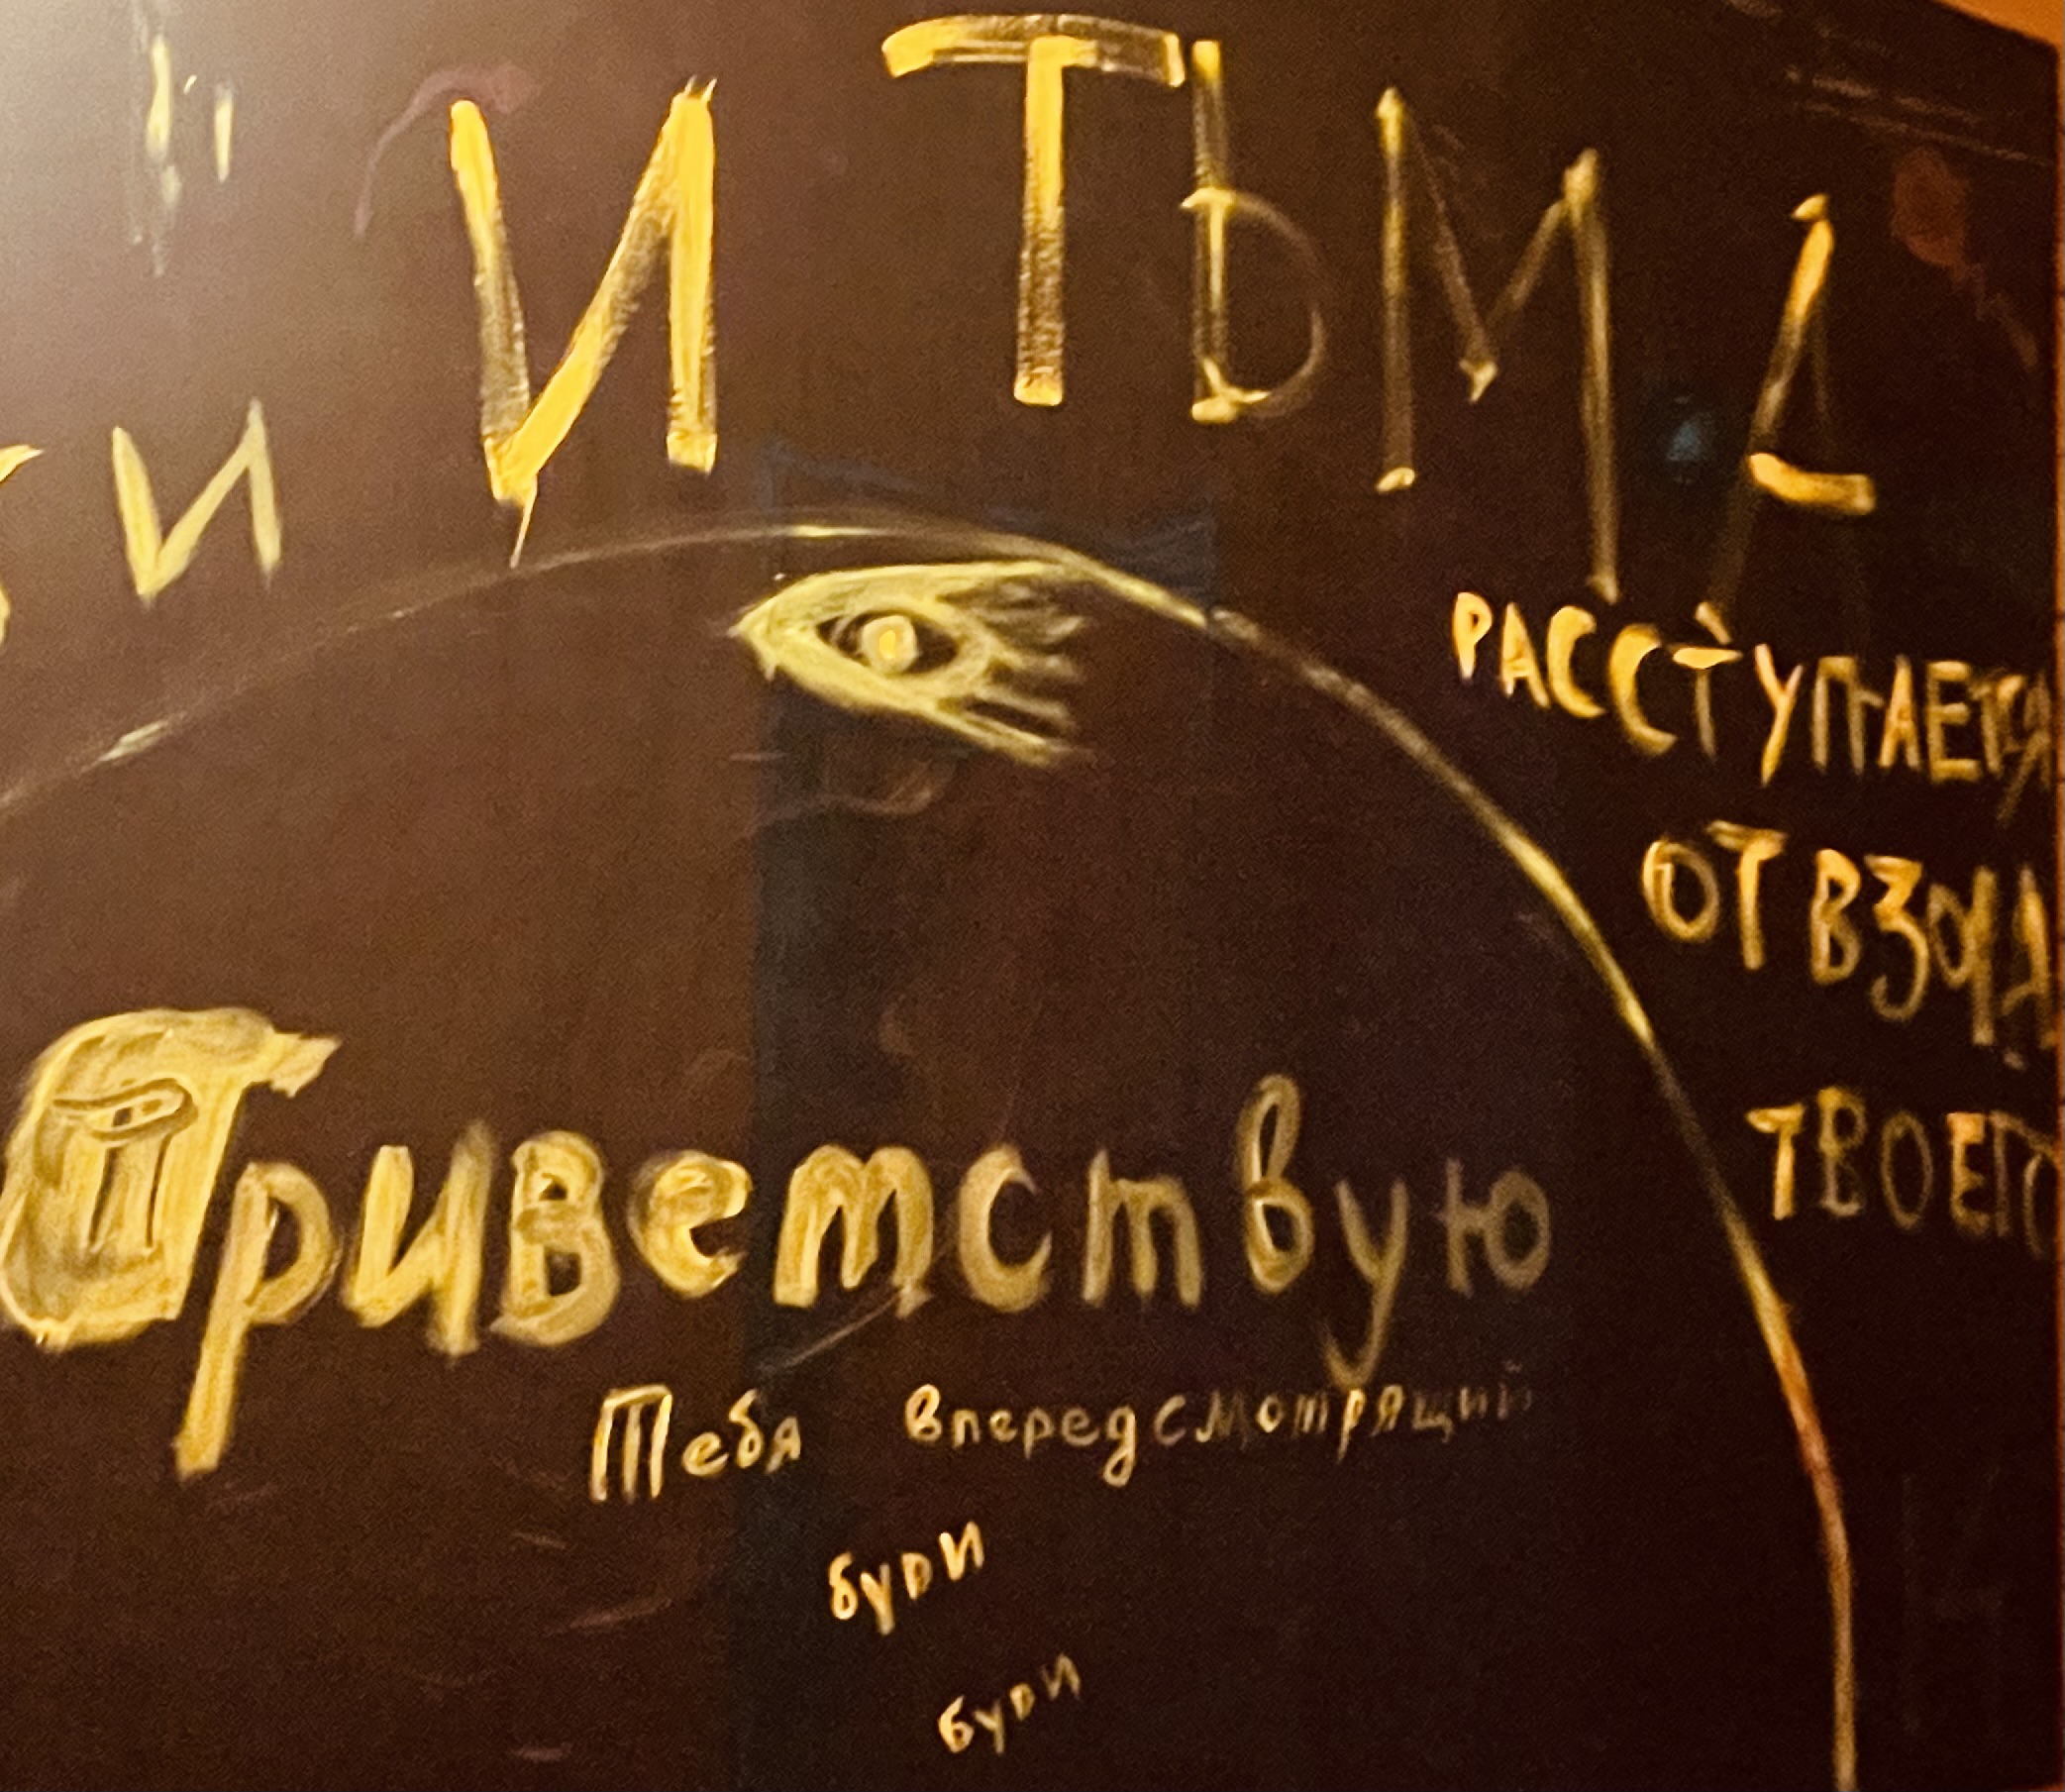 И ТЬМА
РАССТУПАЕТСЯ
ОТ ВЗОРА
ТВОЕГО
Приветствую
Тебя впередсмотрящий
буди
буди